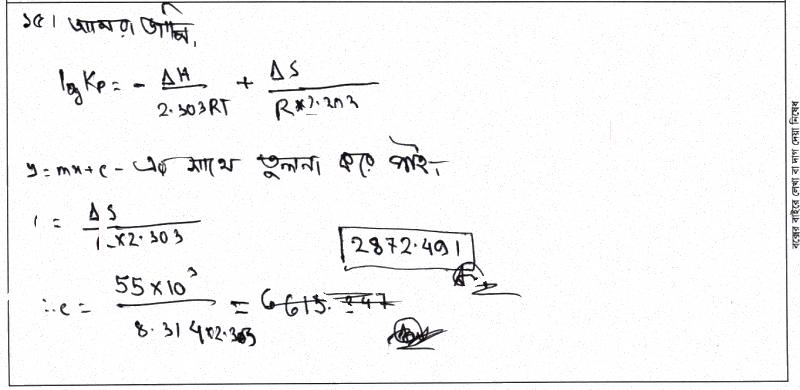 ১৫। আমরা জানি,
log Kp = - ΔH / 2.303RT + ΔS / R × 2.303
y = mx + c - এর সাথে তুলনা করে পাই,
= ΔS / ×2.303
2872.491
∴ c = 55 × 10³ / 8.314 × 2.303 =
বক্সের বাইরে লেখা বা দাগ দেয়া নিষেধ